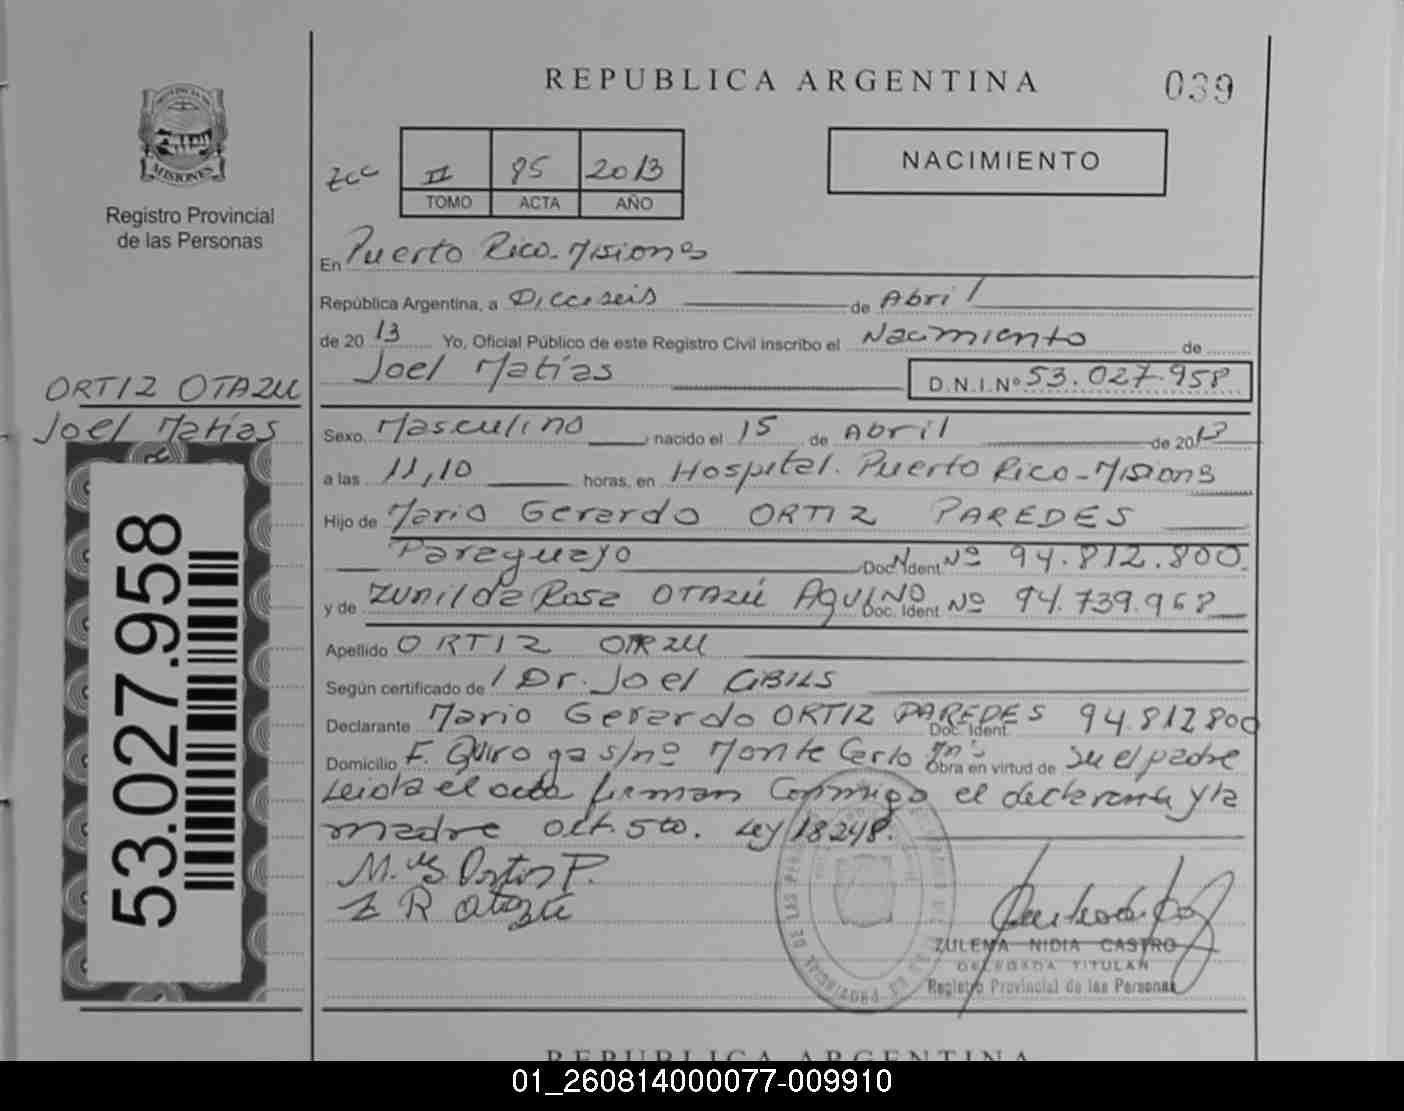 REPUBLICA ARGENTINA
039
PROVINCIA DE
MISIONES
Registro Provincial
de las Personas
II 95 2013
TOMO ACTA AÑO
NACIMIENTO
En Puerto Rico - Misiones
República Argentina, a Dieciseis de Abril
de 2013 Yo, Oficial Público de este Registro Civil inscribo el Nacimiento de
Joel Matías D.N.I.Nº 53.027.958
ORTIZ OTAZU
Joel Matías
Sexo Masculino nacido el 15 de Abril de 2013
a las 11,10 horas, en Hospital. Puerto Rico - Misiones
Hijo de Mario Gerardo ORTIZ PAREDES
Paraguayo Doc. Ident. Nº 94.812.800
y de Zunilda Rosa OTAZÚ AQUINO Doc. Ident. Nº 94.739.968
Apellido ORTIZ OTAZU
Según certificado de Dr. Joel CIBILS
Declarante Mario Gerardo ORTIZ PAREDES Doc. Ident. 94.812800
Domicilio F. Quiroga s/nº Monte Carlo Mns Obra en virtud de Su el padre
Leida el acta firman conmigo el declarante y la
madre art. 5to. Ley 18248.
M. Ortiz P.
Z R Otazú
ZULEMA NIDIA CASTRO
DELEGADA TITULAR
Registro Provincial de las Personas
53.027.958
REPUBLICA ARGENTINA
01_260814000077-009910